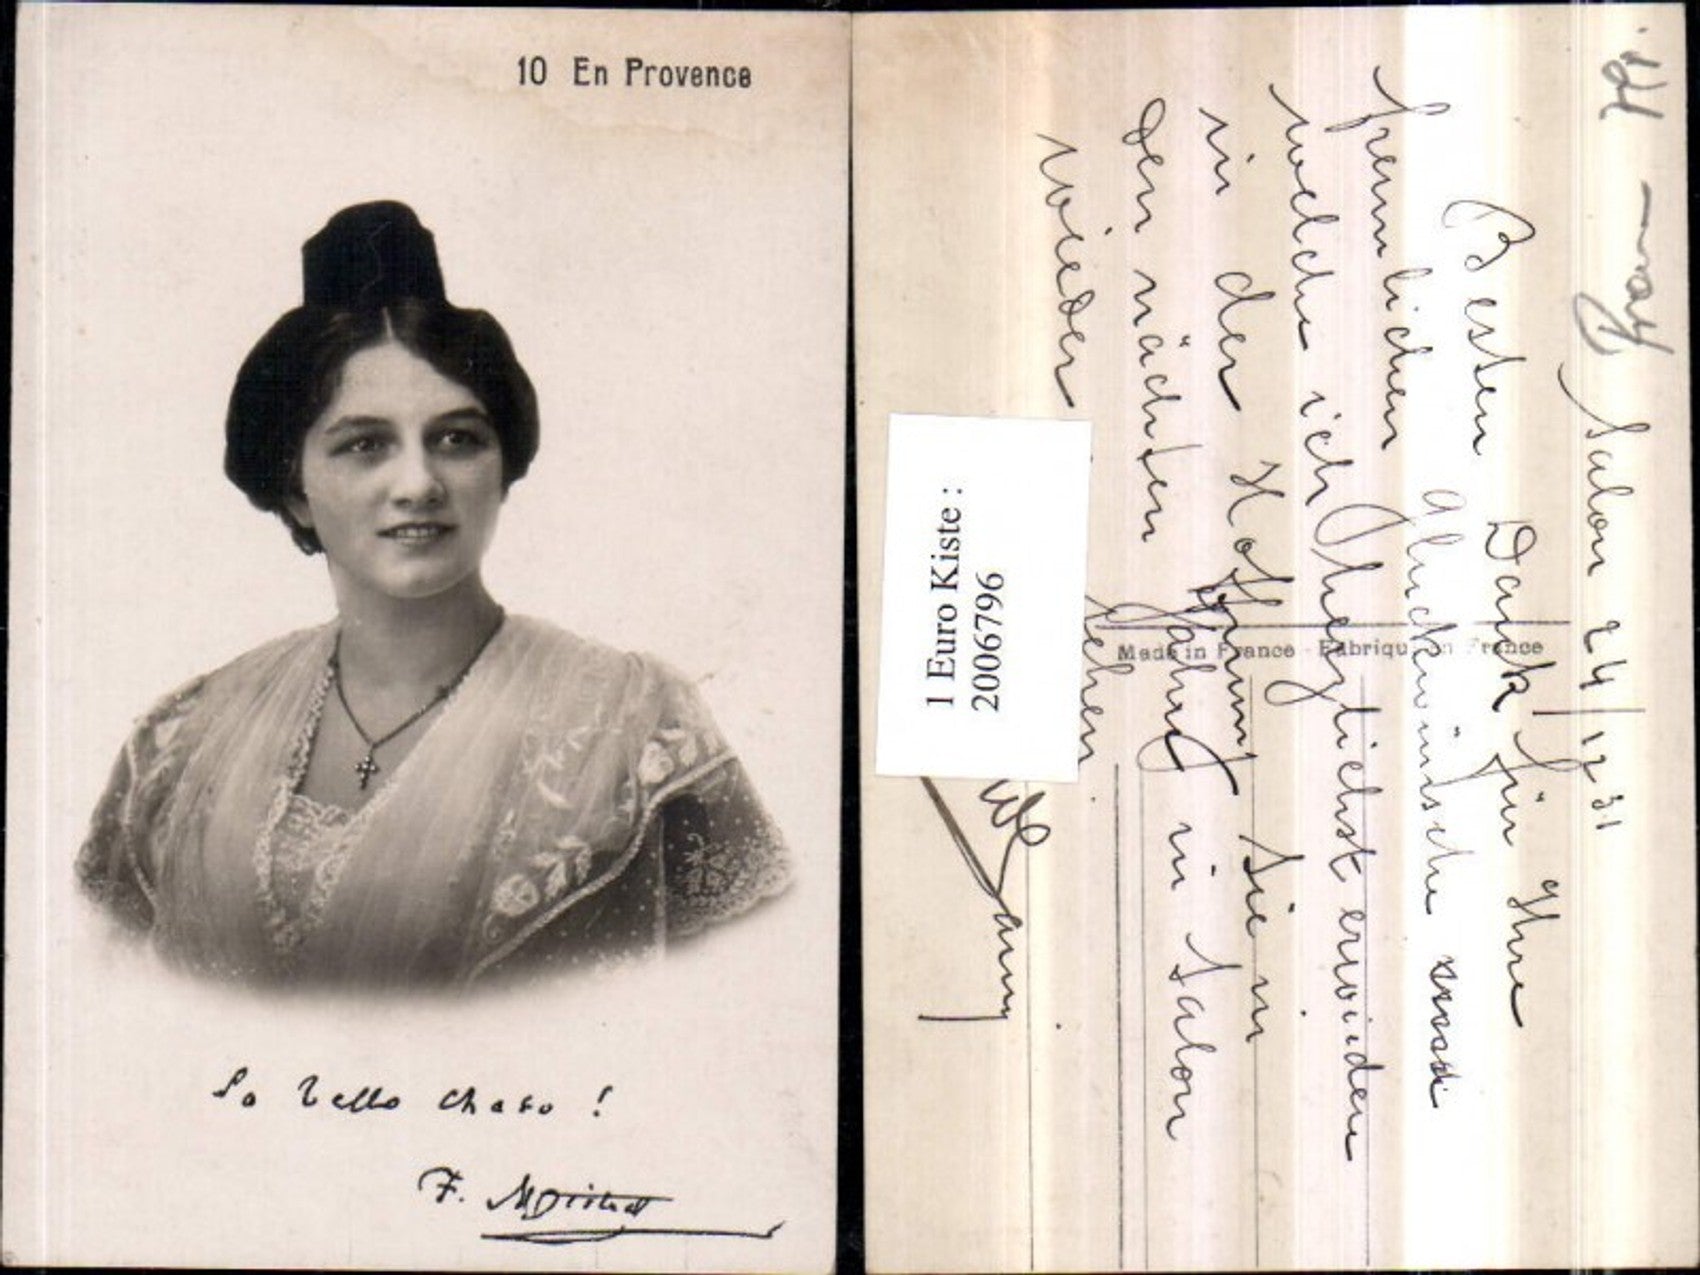 10 En Provence
La bello chato !
F. Mistral
Salon 24/12 31
Besten Dank für Ihre
freundlichen Glückwünsche
welche ich herzlichst erwidere
in der Hoffnung Sie in
den nächsten Jahre in Salon
wieder sehen.
Made in France - Fabriqué en France
1 Euro Kiste :
2006796